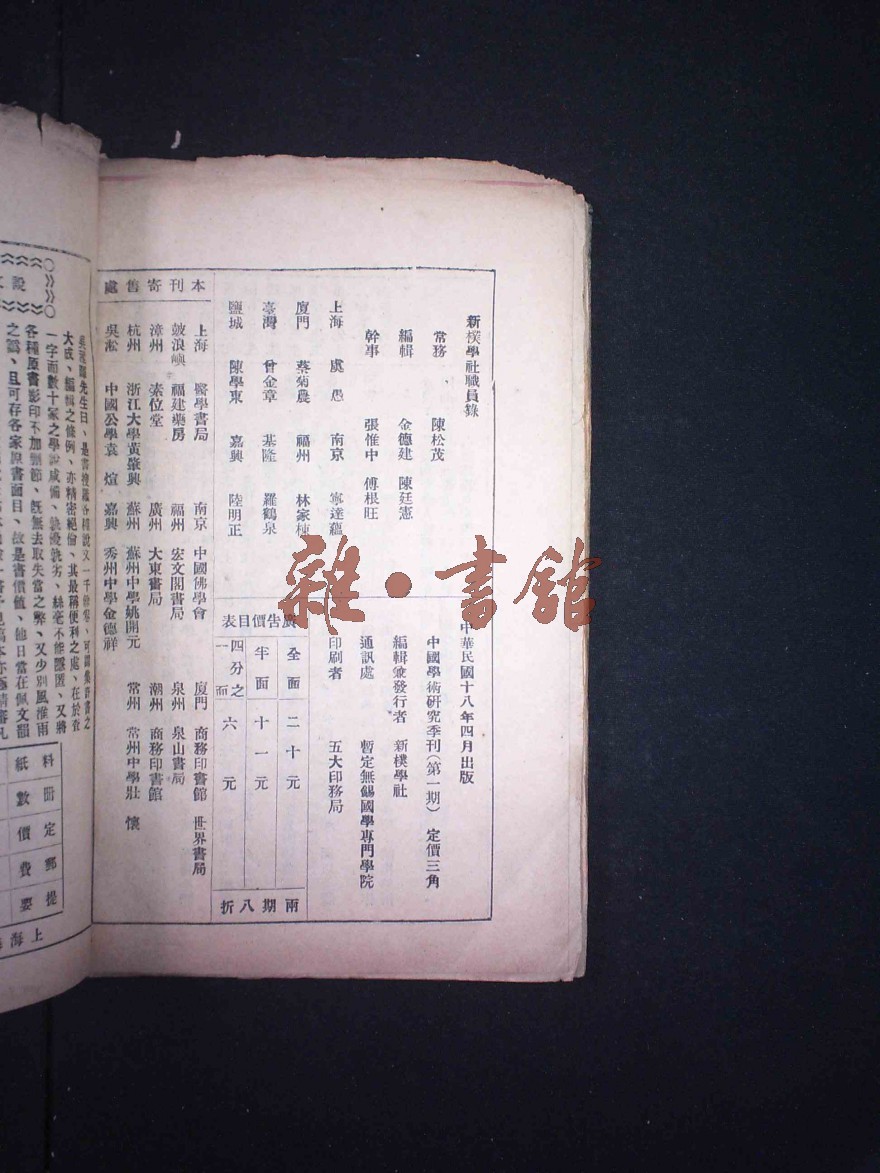 新樸學社職員錄
常務 陳松茂
編輯 金德建 陳廷憲
幹事 張惟中 傅根旺
上海 虞愚 南京 寧達蘊
廈門 蔡菊農 福州 林家楝
臺灣 曾金章 基隆 羅鶴泉
鹽城 陳學東 嘉興 陸明正
中華民國十八年四月出版
中國學術研究季刊(第一期) 定價三角
編輯兼發行者 新樸學社
通訊處 暫定無錫國學專門學院
印刷者 五大印務局
廣告價目表
全面 二十元
半面 十一元
四分之一面 六元
兩期八折
本刊寄售處
上海 醫學書局 南京 中國佛學會 廈門 商務印書館 世界書局
鼓浪嶼 福建藥房 福州 宏文閣書局 泉州 泉山書局
漳州 素位堂 廣州 大東書局 潮州 商務印書館
杭州 浙江大學黃肇興 蘇州 蘇州中學姚開元 常州 常州中學壯懷
吳淞 中國公學袁煊 嘉興 秀州中學金德祥
先生曰、是書搜羅各種說文一千餘卷、可謂集許書之
大成、編輯之條例、亦精密絕倫、其最稱便利之處、在於查
一字而數十家之學說咸備、孰優孰劣、絲毫不能隱匿、又將
各種原書影印不加刪節、既無去取失當之弊、又少別風淮雨
之譌、且可存各家原書面目、故是書價值、他日當在佩文韻
說
料 冊 定 郵 提
紙 數 價 費 要
上海
雜·書館